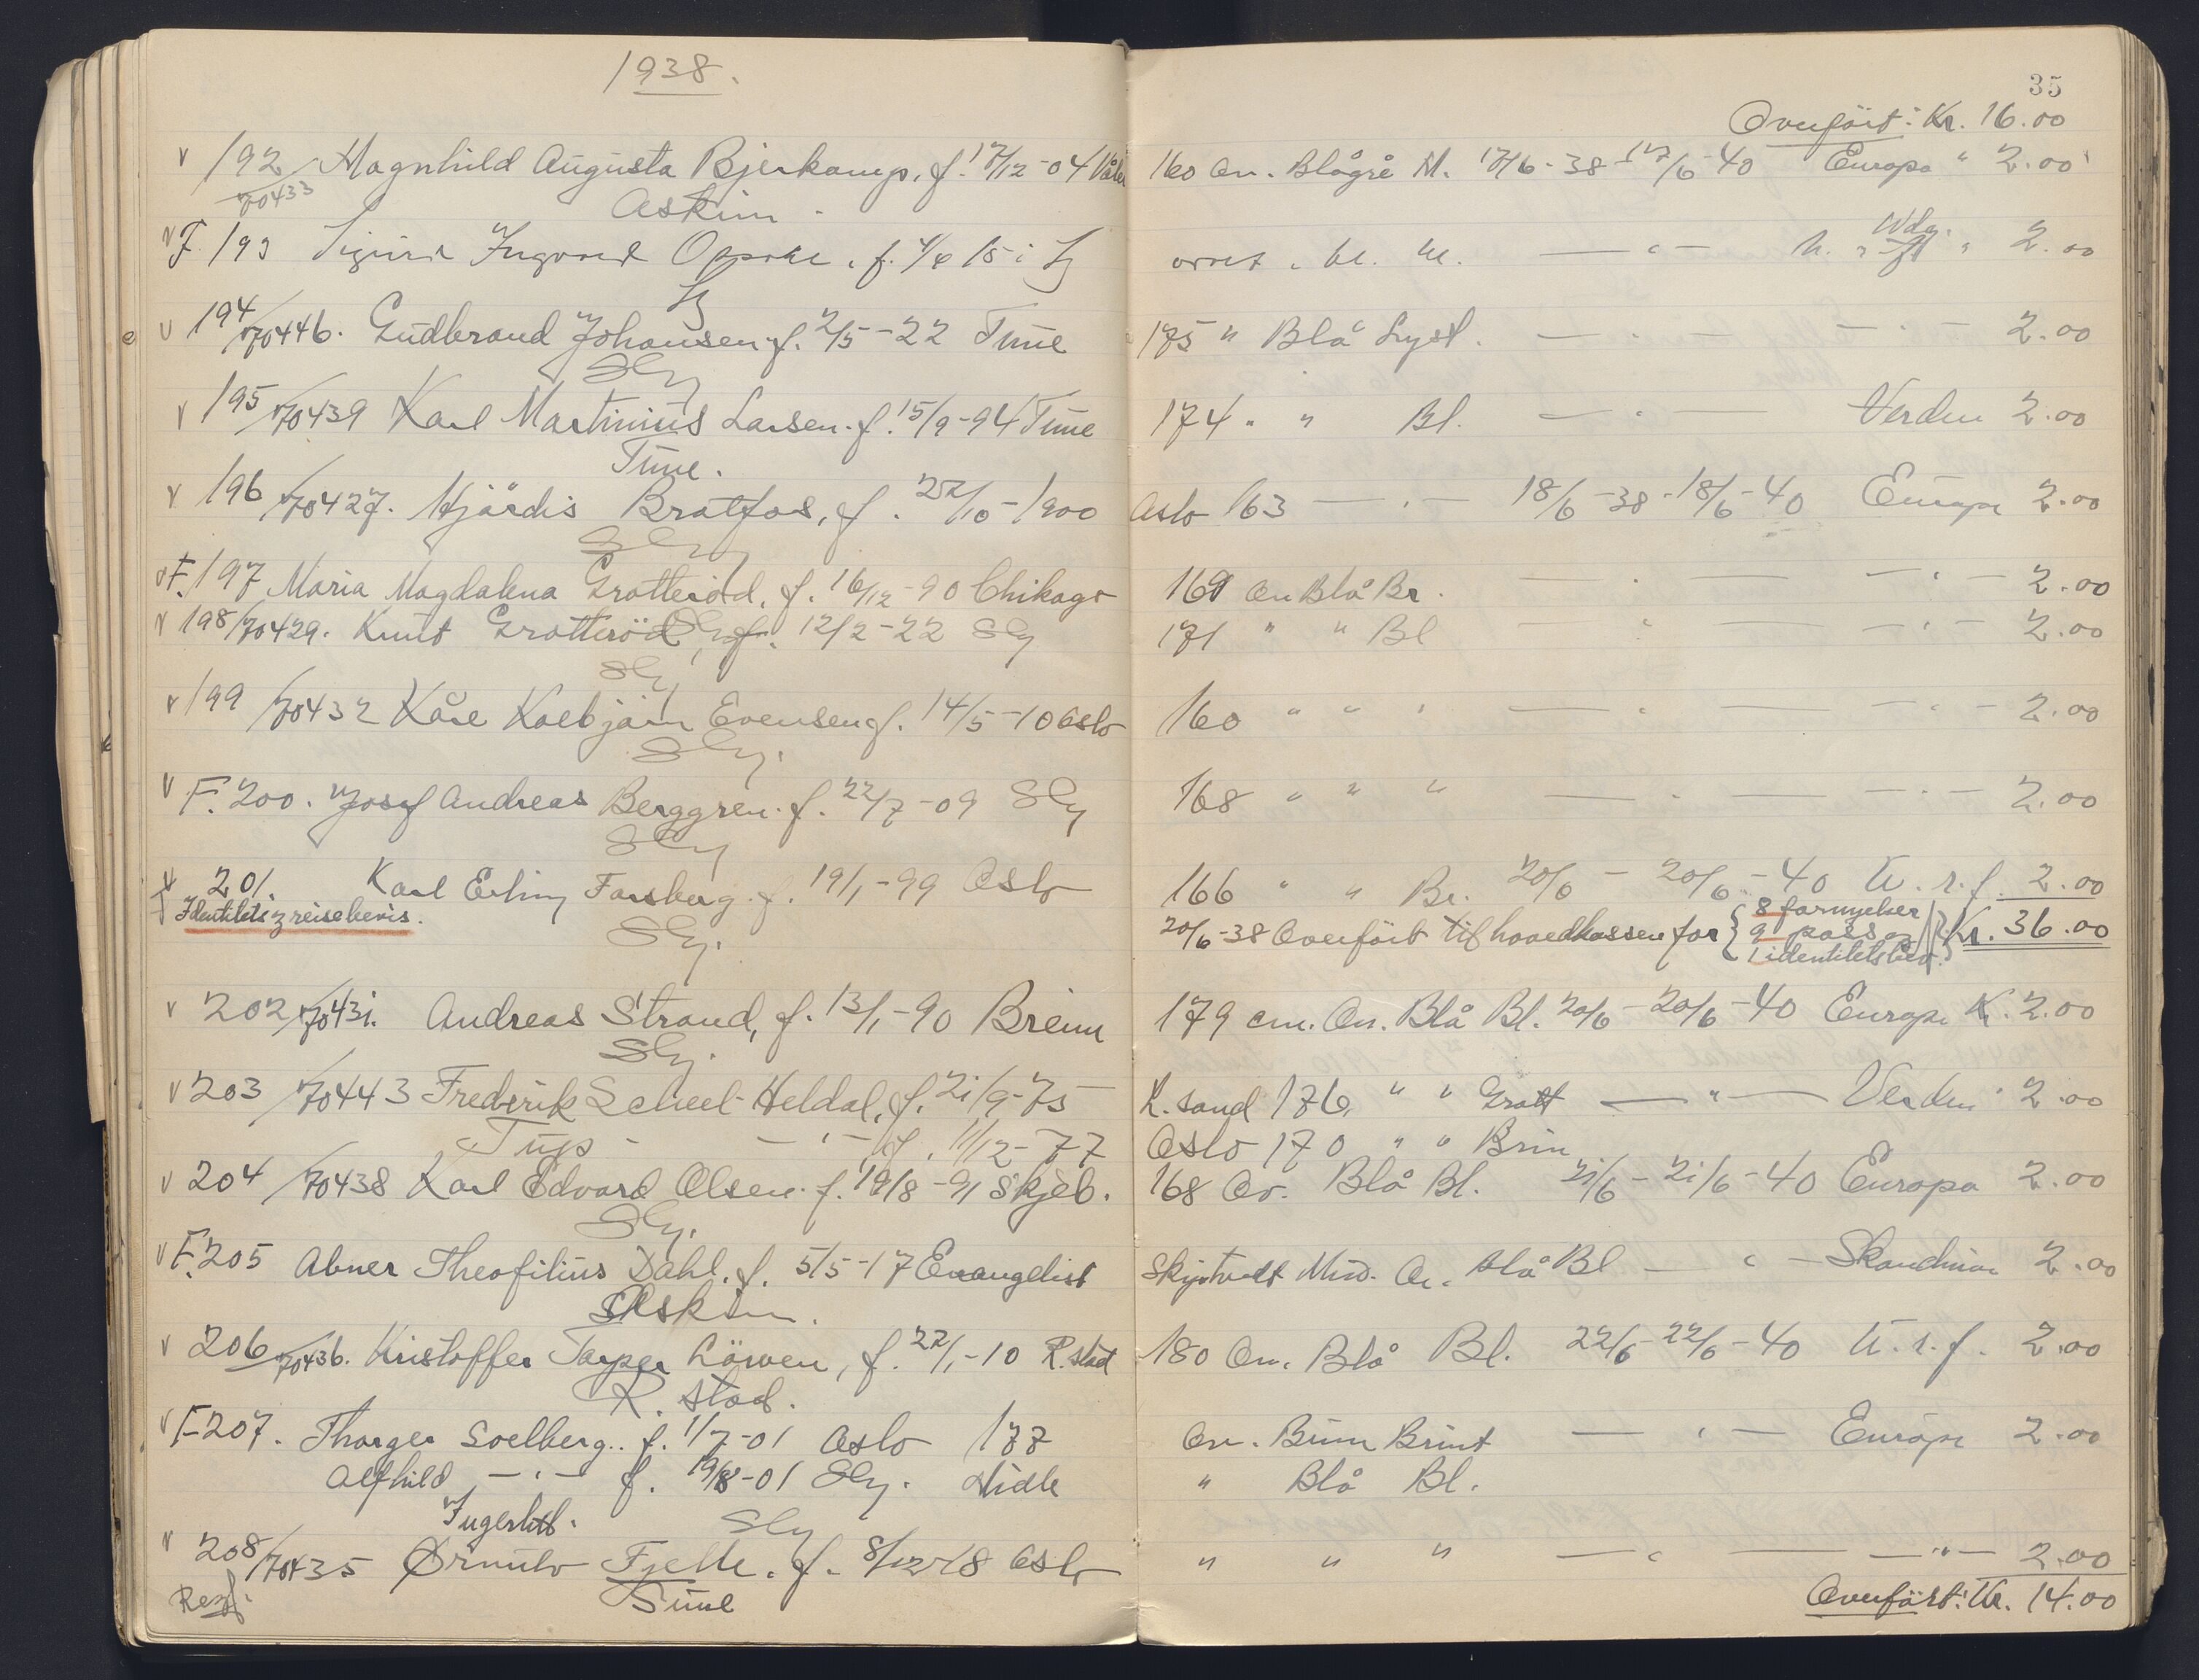 1938.
35
Overført: Kr. 16.00
192 Magnhild Augusta Bjerkamp, f. 17/12-04 Våler 160 Ov. Blågrå M. 17/6-38-17/6-40 Europa " 2.00
70433 Askim.
F. 193 Sigurd Ingvard f. 4/6 15 i 2.00
194/70446. Gudbrand Johansen f. 2/5-22 Tune 175 " Blå Lyst. — " — — " — 2.00
Slg
195/70439 Karl Martinius Larsen. f. 15/9-94 Tune 174 " " Bl. — " — Verden 2.00
Tune.
196/70427. Hjördis Bratfos, f. 22/10-1900 Oslo 163 — " — 18/6-38-18/6-40 Europa 2.00
Slg
F. 197 Maria Magdalena Grotteröd, f. 16/12-90 Chikago 169 Ov Blå Br. — " — — " — 2.00
198/70429. Knut Grotteröd, f. 12/2-22 Slg 171 " " Bl — " — — " — 2.00
Slg
199/70432 Kåre Kolbjörn Evensen f. 14/5-10 Oslo 160 " " " — " — — " — 2.00
Slg.
F. 200. Josef Andreas Berggren. f. 22/7-09 Slg 168 " " " — " — — " — 2.00
Slg
201. Karl Erling Forsberg. f. 19/1-99 Oslo 166 " " Br. 20/6 - 20/6-40 U.r.f. 2.00
Identitets & reisebevis. Slg. 20/6-38 Overfört til hovedkassen for { 8 fornyelser 9 pass og 1 identitetsbev. } Kr. 36.00
202/70431. Andreas Strand, f. 13/1-90 Breim 179 cm. Ov. Blå Bl. 20/6-20/6-40 Europa K. 2.00
Slg.
203/70443 Frederik Scheel Heldal, f. 21/9-75 K.sand 176 " " Grått — " — Verden 2.00
— " — f. 11/12-77 Oslo 170 " " Brun
204/70438 Karl Edvard Olsen. f. 19/8-91 Skjeb. 168 Ov. Blå Bl. 21/6-21/6-40 Europa 2.00
Slg.
F. 205 Abner Theofilius Dahl. f. 5/5-17 Evangelist Skiptvedt Mid. Ov. blå Bl — " — Skandinav 2.00
Askim.
206/70436. Kristoffer Jasper Löwen, f. 22/1-10 R.stad 180 Ov. Blå Bl. 22/6-22/6-40 U.r.f. 2.00
R.stad.
F 207. Thorger Soelberg. f. 1/7-01 Oslo 177 Ov. Brun Brunt — " — Europa 2.00
Alfhild — " — f. 19/8-01 Slg. Midle " Blå Bl.
Slg
208/70435 Ørnulv Fjelle. f. 8/12-18 Oslo " " " — " — — " — 2.00
Tune
Overfört: Kr. 14.00